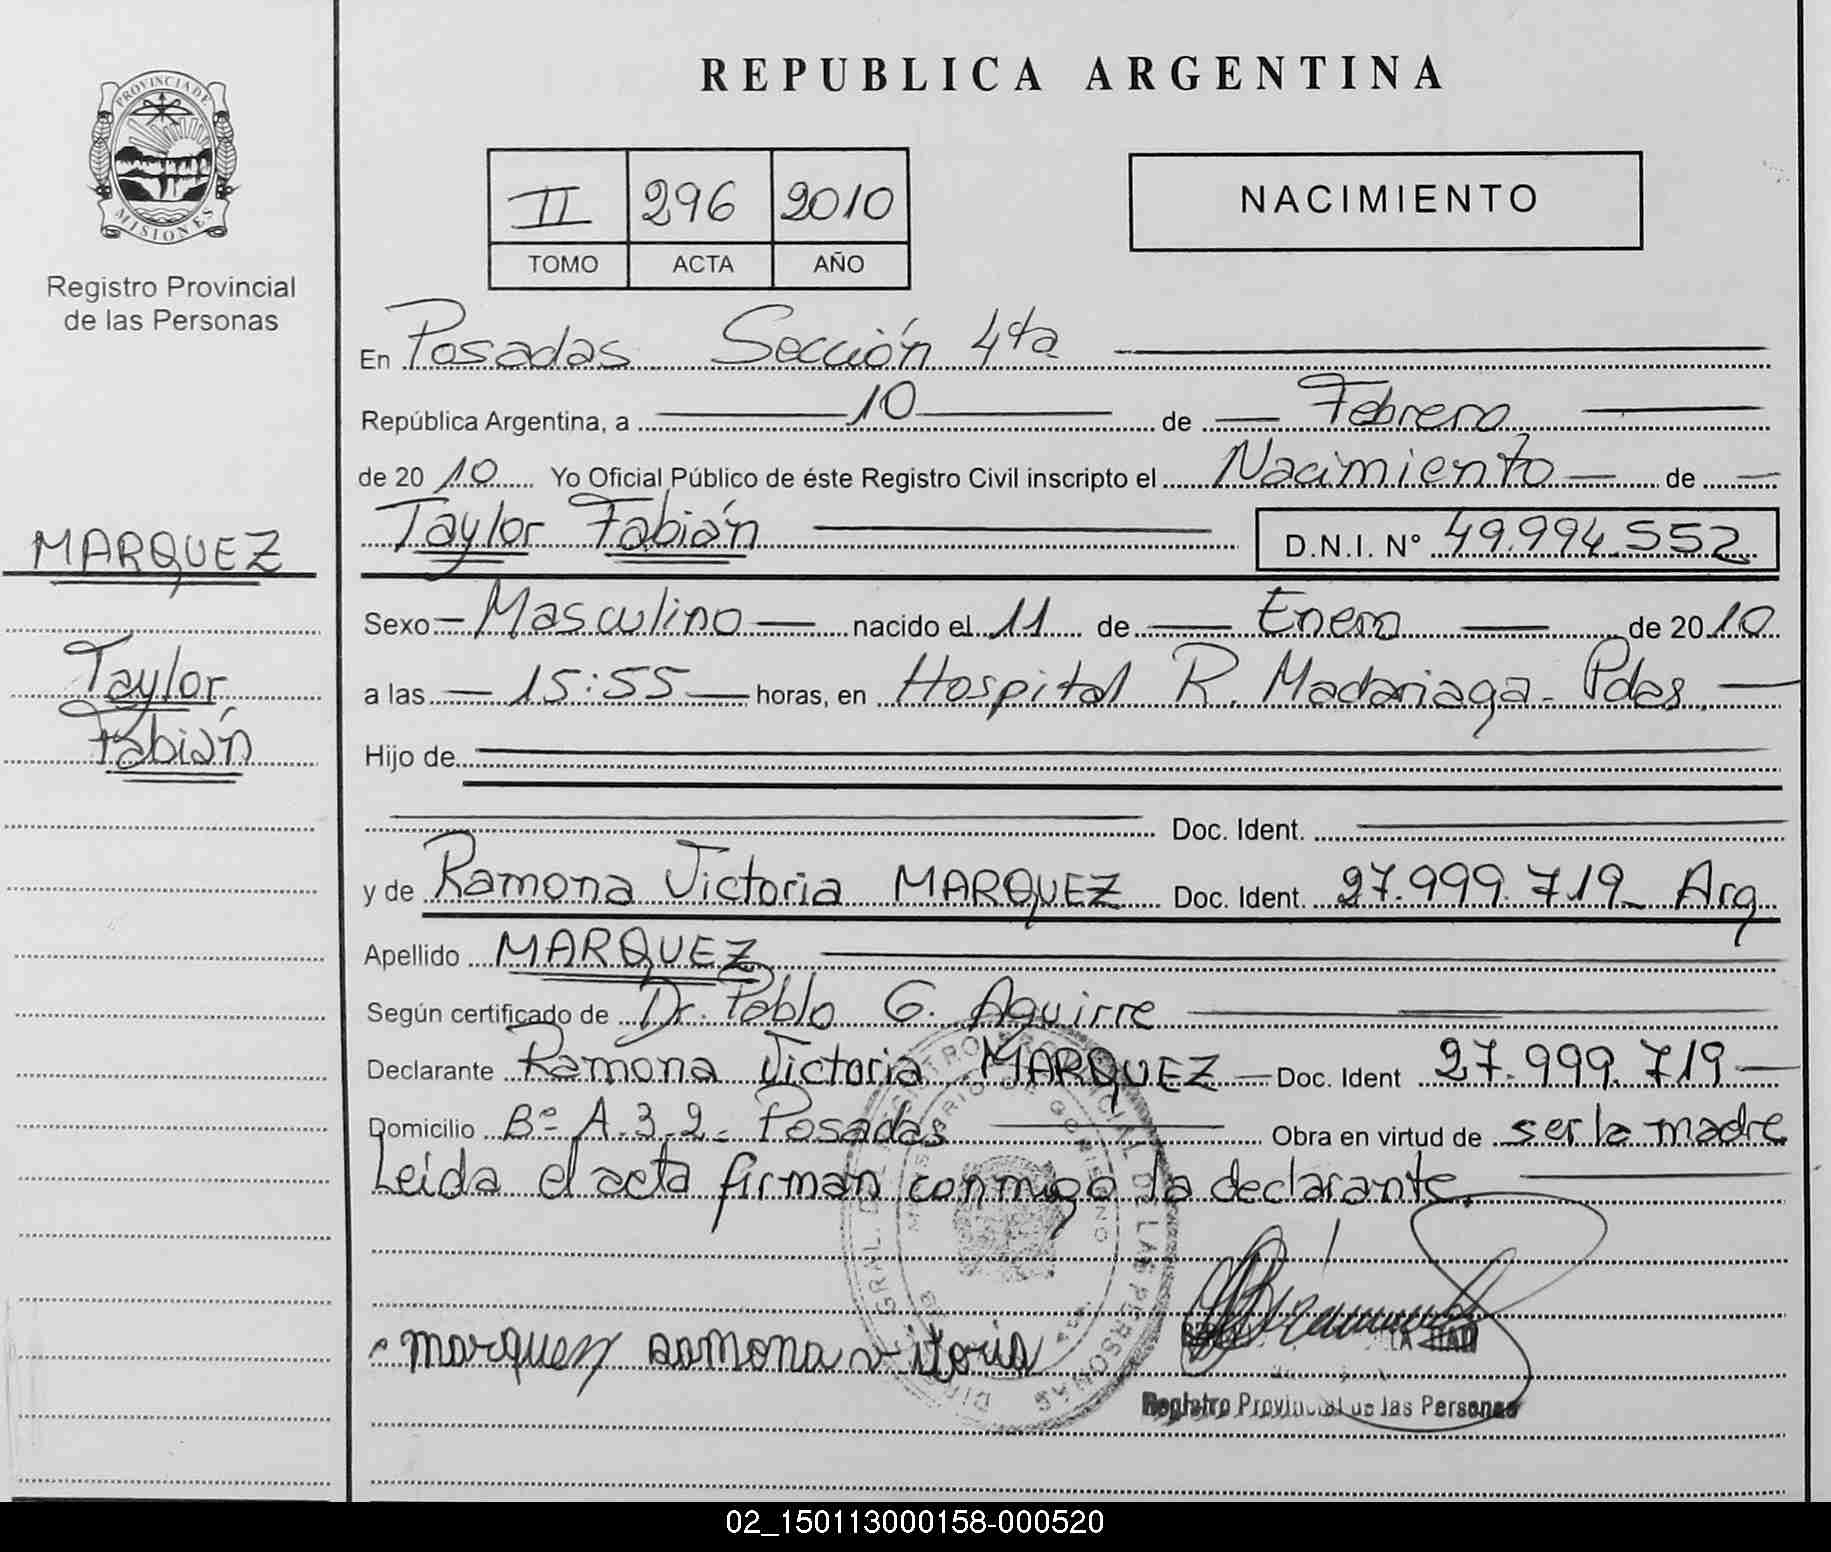 REPUBLICA ARGENTINA
PROVINCIA DE
MISIONES
Registro Provincial
de las Personas
II 296 2010
TOMO ACTA AÑO
NACIMIENTO
En Posadas Sección 4ta
República Argentina, a 10 de Febrero
de 20 10 Yo Oficial Público de éste Registro Civil inscripto el Nacimiento de
Taylor Fabián D.N.I. N° 49.994.552
MARQUEZ
Taylor
Fabián
Sexo Masculino nacido el 11 de Enero de 20 10
a las 15:55 horas, en Hospital R. Madariaga - Pdas.
Hijo de
Doc. Ident.
y de Ramona Victoria MARQUEZ Doc. Ident. 27.999.719_ Arg
Apellido MARQUEZ
Según certificado de Dr. Pablo G. Aguirre
Declarante Ramona Victoria MARQUEZ Doc. Ident 27.999.719
Domicilio Bº A.3.2. Posadas Obra en virtud de ser la madre
Leida el acta firman conmigo la declarante.
marquez ramona vitoria
Registro Provincial de las Personas
02_150113000158-000520